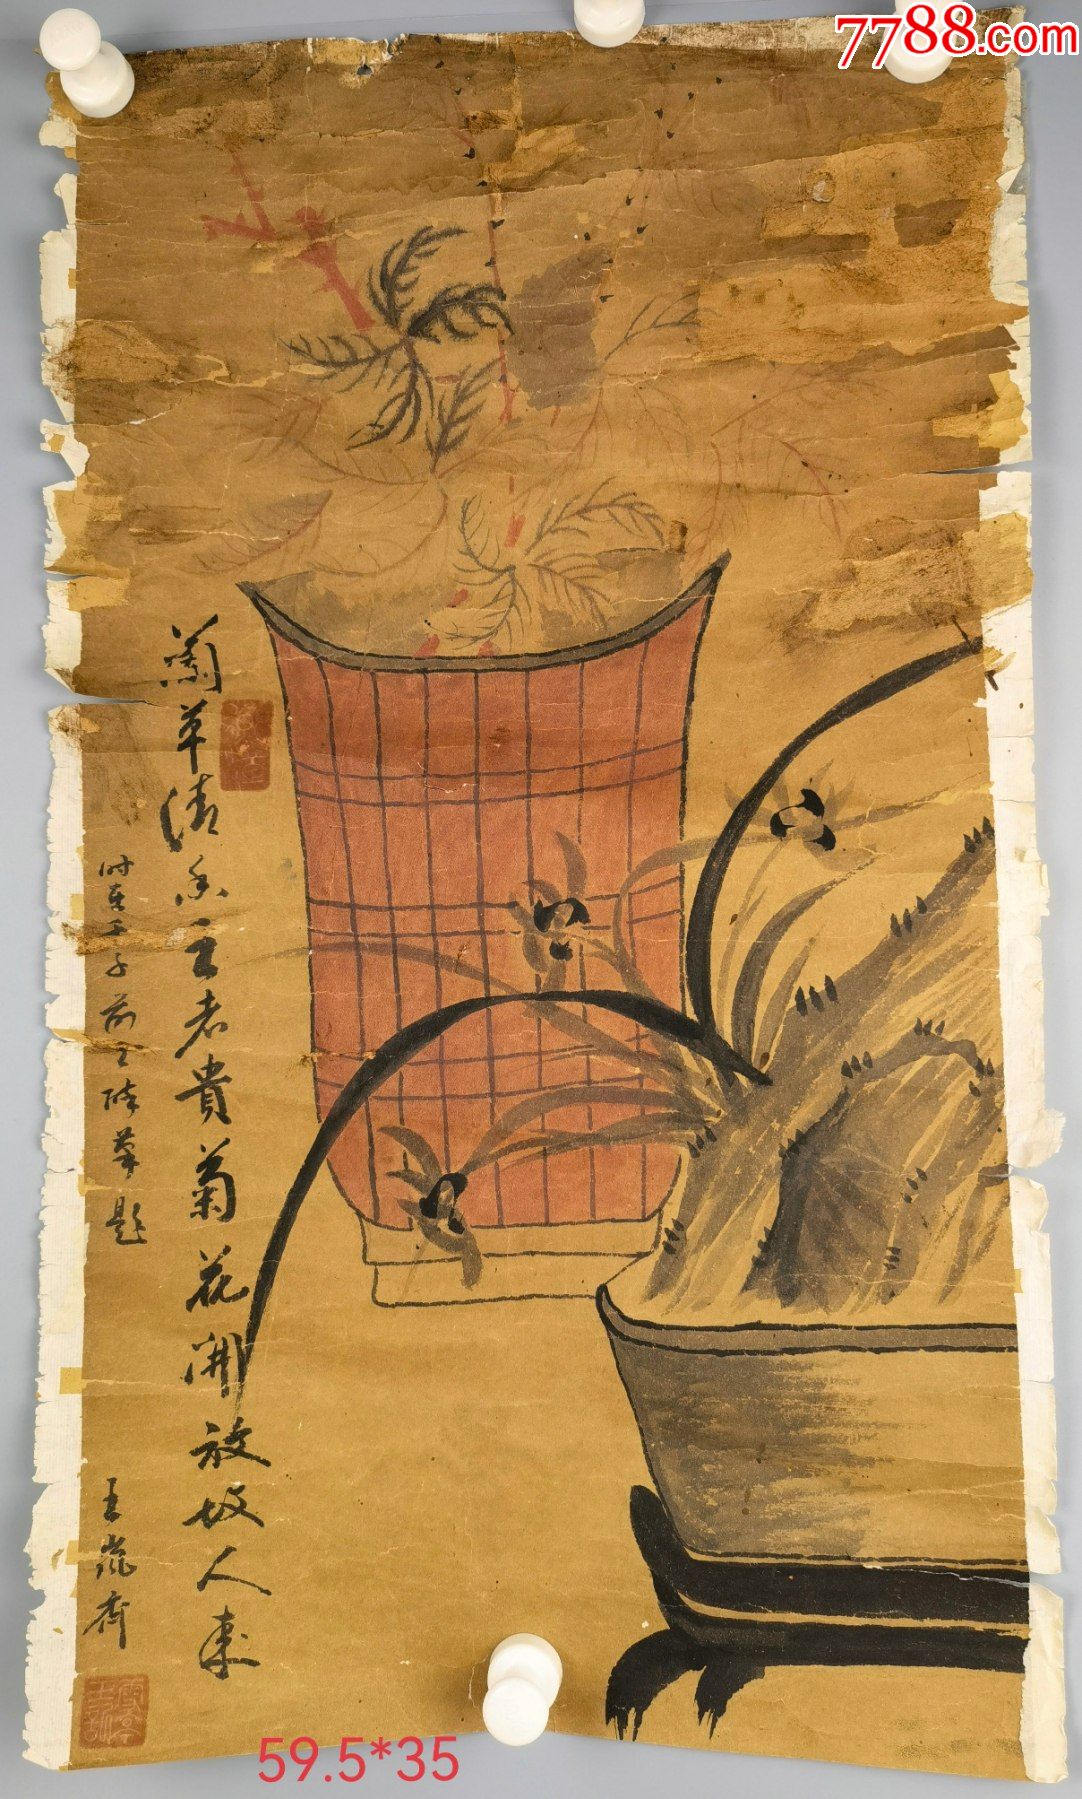 7788.com
蘭草清香王者貴菊花開放故人來
时在壬子題
王嵐齋
59.5*35